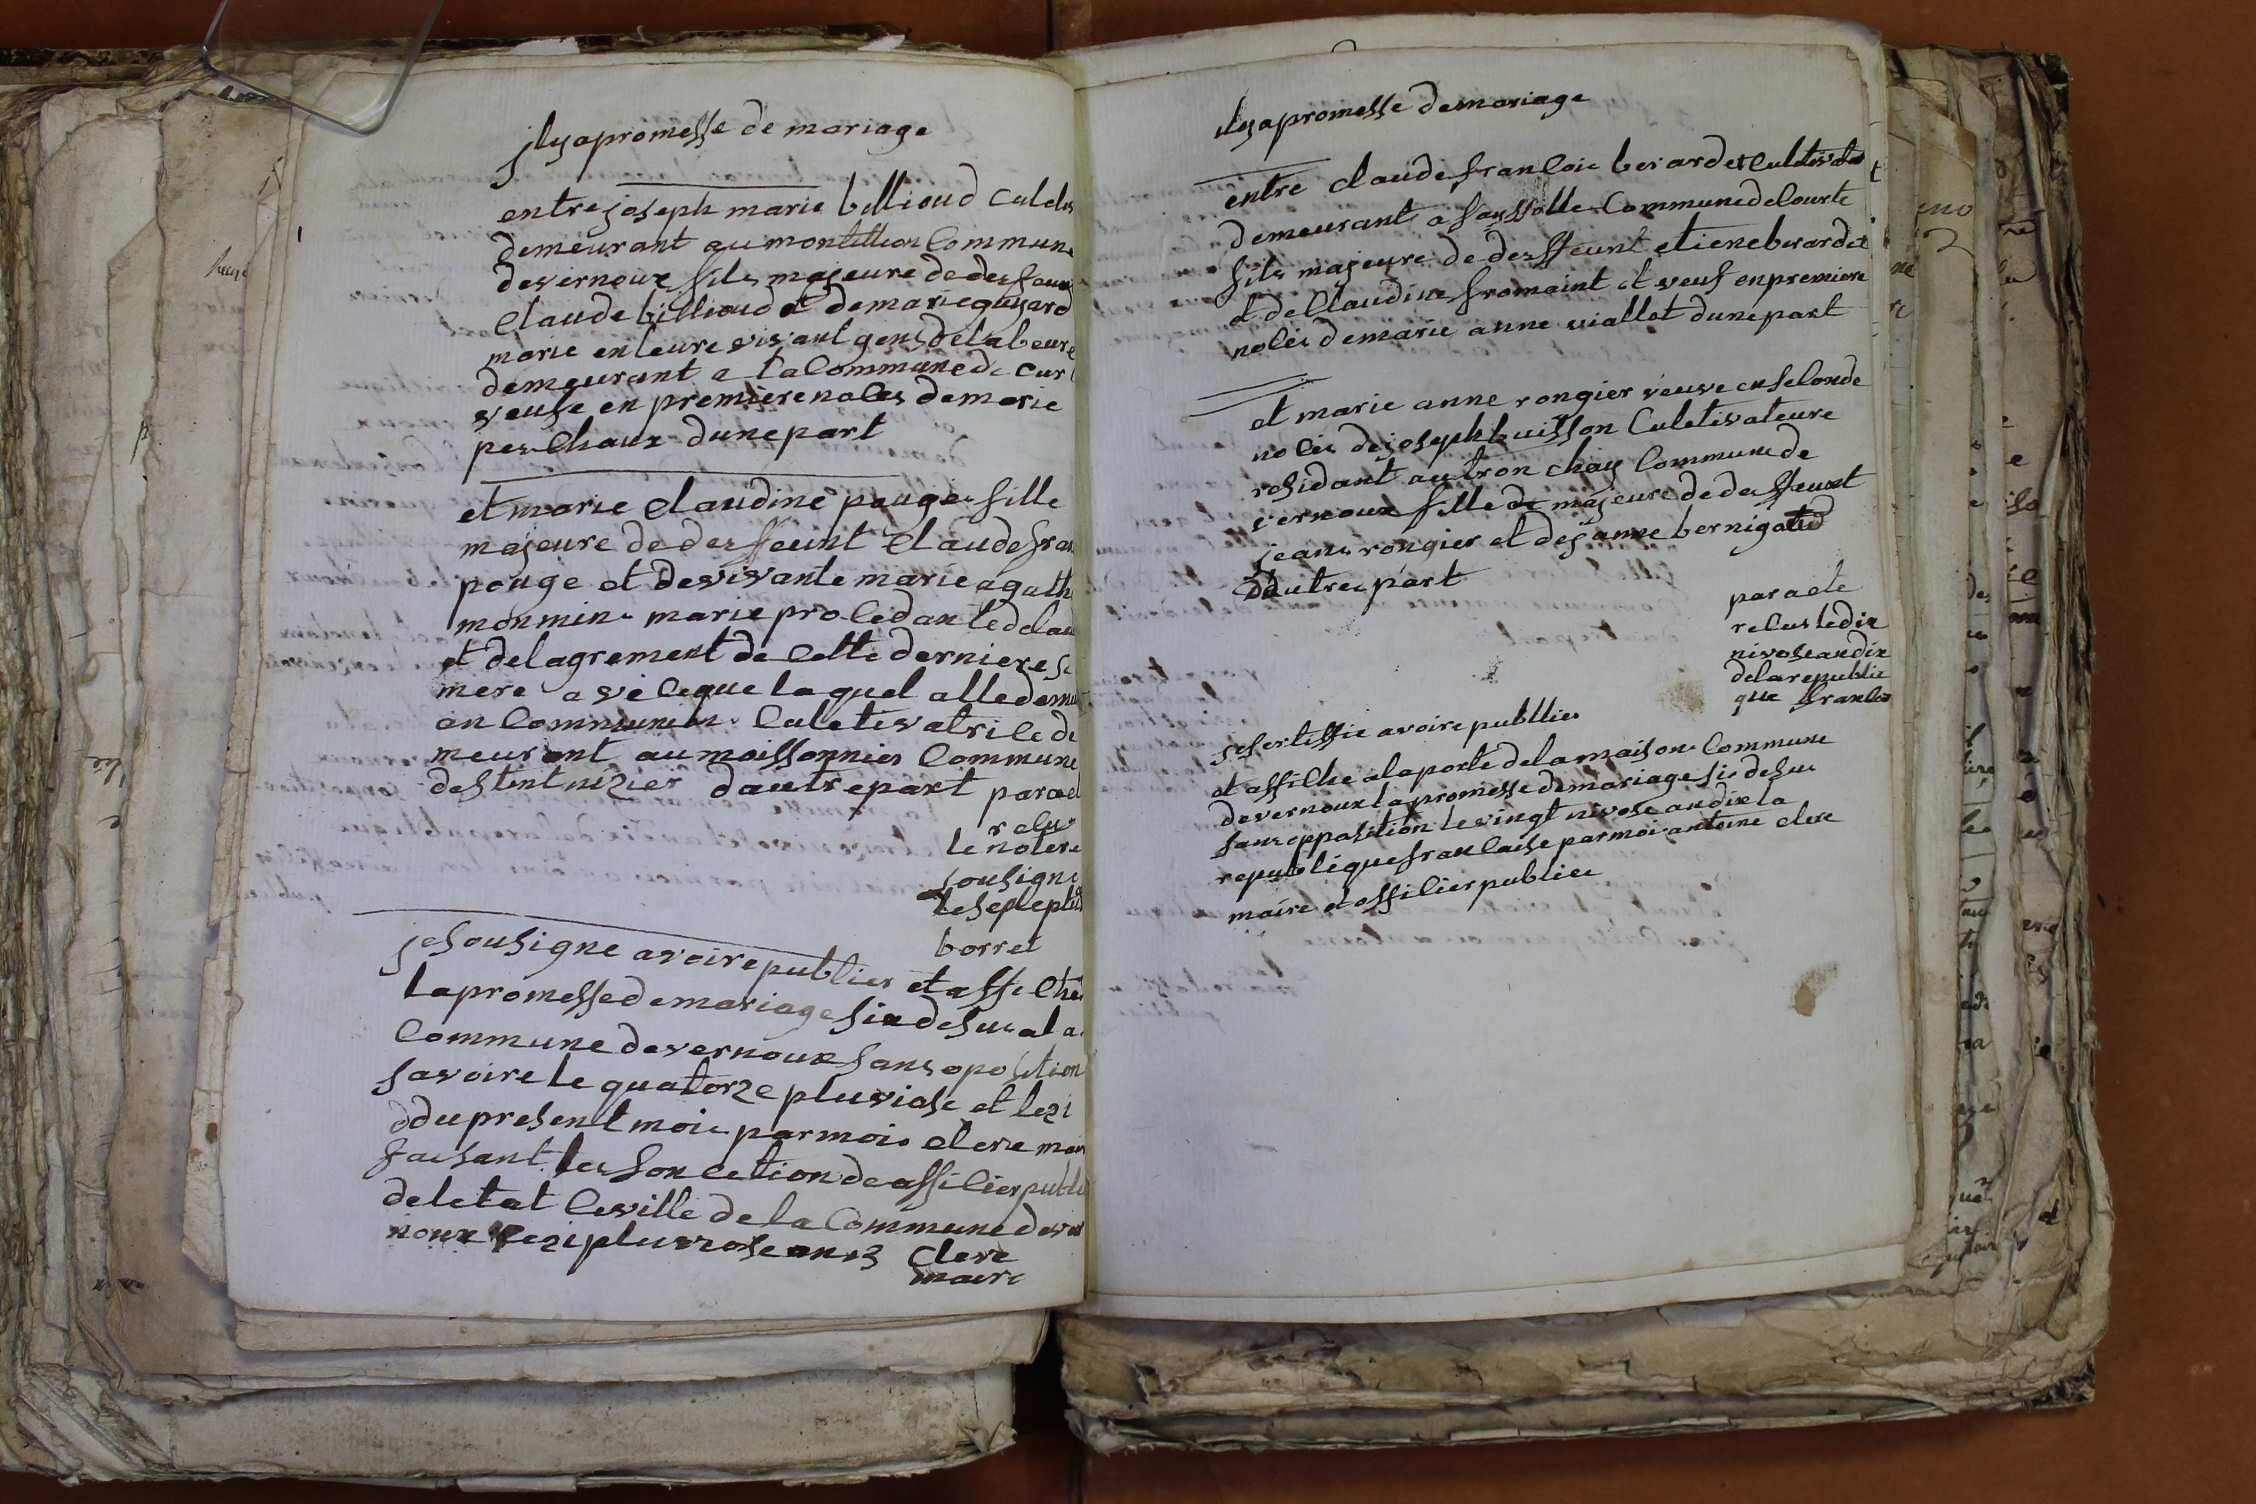 jlyapromesse de mariage
entre joseph marie billioud Culeles
demeurant aumontillion Commune
devernoux fils majeure de deffeun
Claude billioud et demarieguyard
marie enleure vivant gens delabeure
demeurant a la Commune de Cur
veufe en premiere noles demarie
perlhaux dunepart
et marie Claudine pouge fille
majeure de deffeunt Claudefran
pouge et devivante marie agath
monmin marie proledante
et delagrement de Cette derniere
mere avèleque laquel alledemeu
en Commune Culetivatrile de
meurant aumoissonnier Commune
destentnizier dautrepart parael
relus
le notere
sousigne
lesepleplu
borret
jesousigne avoirepublier et affi Che
lapromessedemariage six desus ala
Commune devernoux sans oposition
savoire le quatorze pluviose et le 21
dupresent mois parmois Clere mair
faisant les fonCetion de affilier publi
deletat Civille de la Commune dever
noux le 21 pluviose an 13 Clere
maire
ilyapromesse demariage
entre Claude franCois berardet Culetivate
demeurant a faussolle Commune deCourte
fils majeure de deffeunt etiene berardet
et deClaudine fromaint et veuf enpremiere
noles demarie anne viallet dunepart
et marie anne rongier veuve en seLonde
noles dejoseph buisson Culetivateure
residant autron chay Commune de
vernoux fille de majeure de deffeunt
jean rongier et dejanne bernigaud
dautre part
paraete
relus ledix
nivoseandix
delarepublic
que franCes
jesertiffie avoire publlier
et affilhe alaporte delamaison Commune
devernoux la promesse demariage si desu
sans oppasition levingt nivose andix la
republique franlaise parmoi antoine Clere
maire et offilier publiec